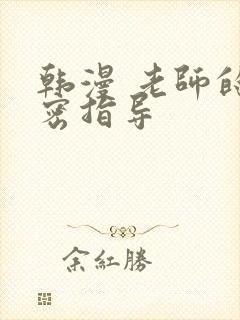 韩漫 老師的
密指导
余紅勝